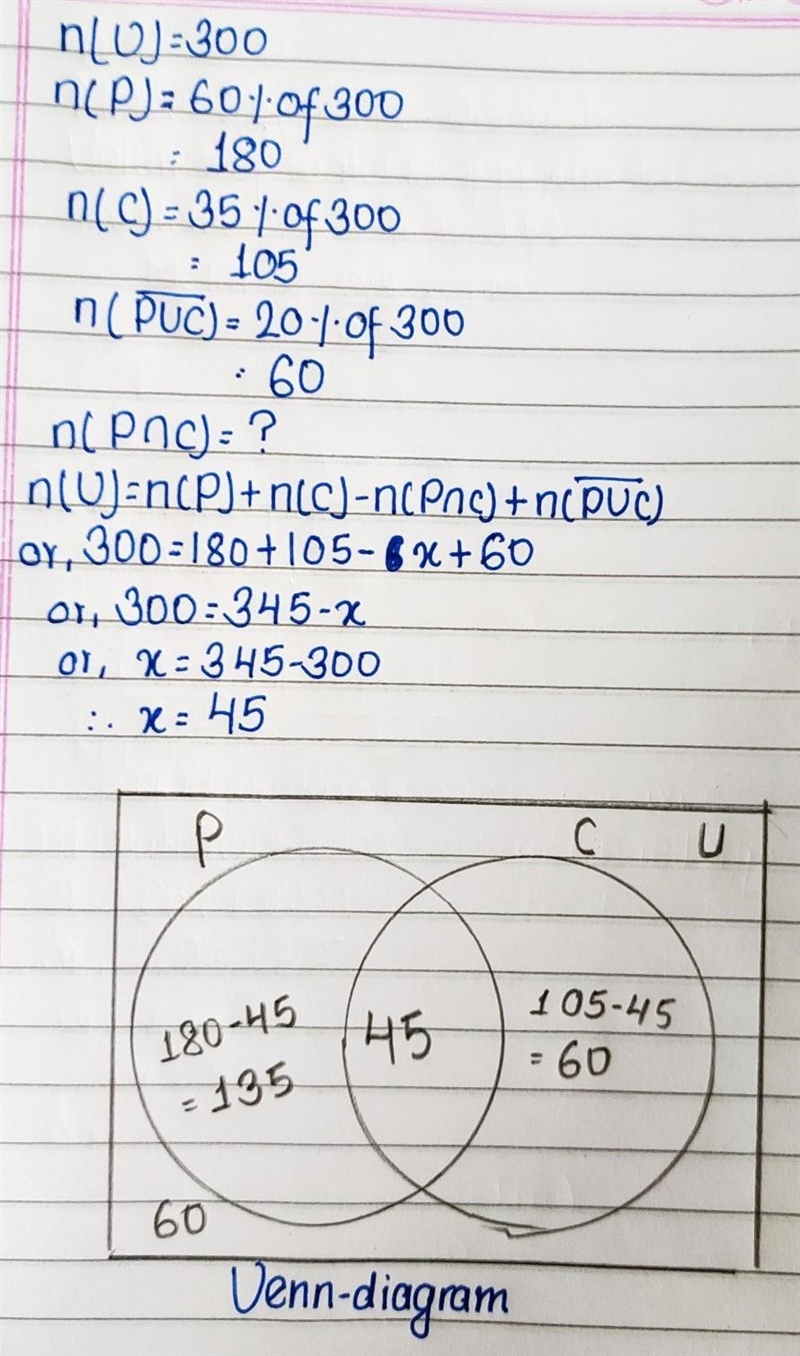 n(U)=300
n(P)=60%of 300
= 180
n(C)=35%of 300
= 105
n(P̅U̅C̅)=20%of 300
= 60
n(P∩C)=?
n(U)=n(P)+n(C)-n(P∩C)+n(P̅U̅C̅)
or, 300=180+105-x+60
or, 300=345-x
or, x=345-300
∴ x=45
P C U
180-45
=135
45
105-45
=60
60
Venn-diagram